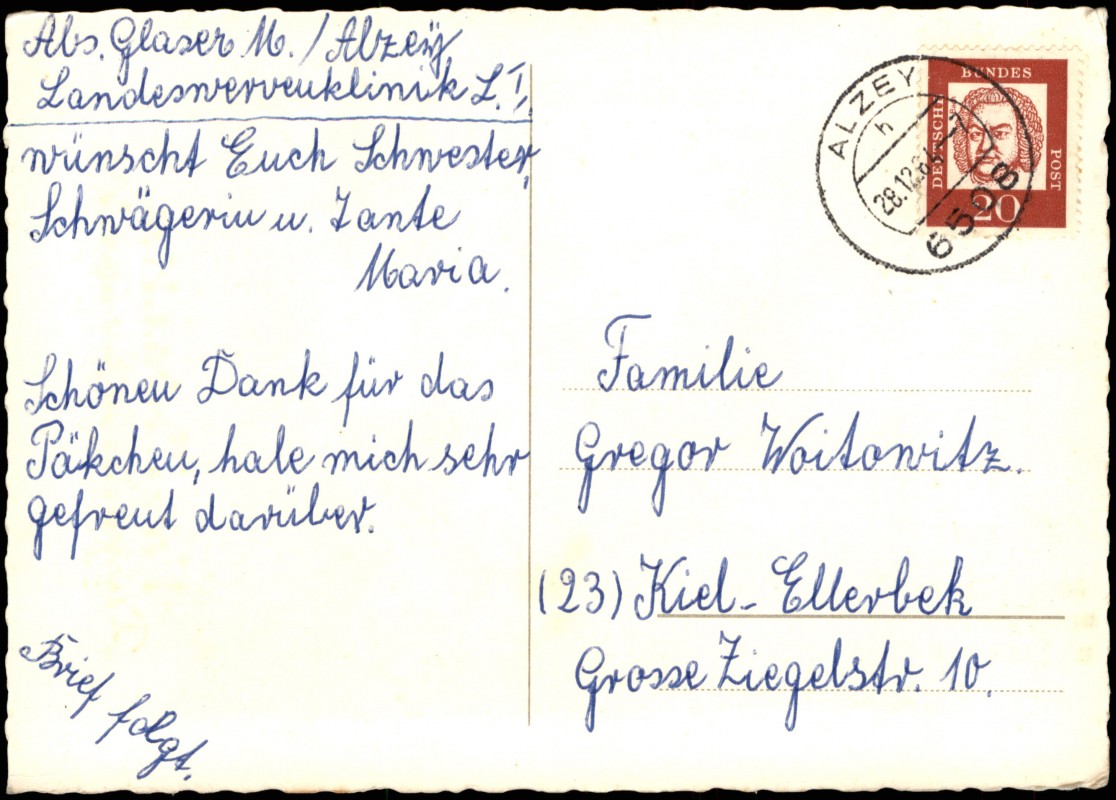 Abs. Glaser M. / Alzey
Landesnervenklinik L. I,
wünscht Euch Schwester,
Schwägerin u. Tante
Maria.
Schönen Dank für das
Päkchen, habe mich sehr
gefreut darüber.
Brief folgt.
ALZEY
h
28.12.6
6508
DEUTSCHE
BUNDES
POST
20
Familie
Gregor Woitowitz.
(23) Kiel-Ellerbek
Grosse Ziegelstr. 10.